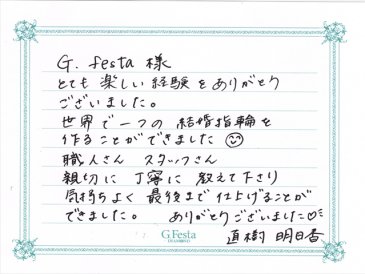 G. festa 様
とても 楽しい 経験 を ありがとう
ございました。
世界で 一つの 結婚指輪を
作る ことが できました
職人さん スタッフさん
親切に 丁寧に 教えて 下さり
気持ちよく 最後まで 仕上げることが
できました。 ありがとうございました♡
直樹 明日香
G.Festa
DIAMOND